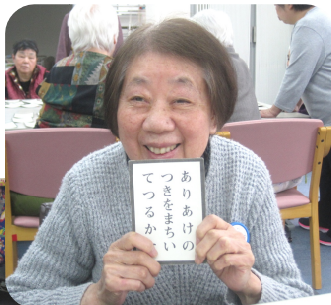 ありあけの
つきをまちい
てつるか